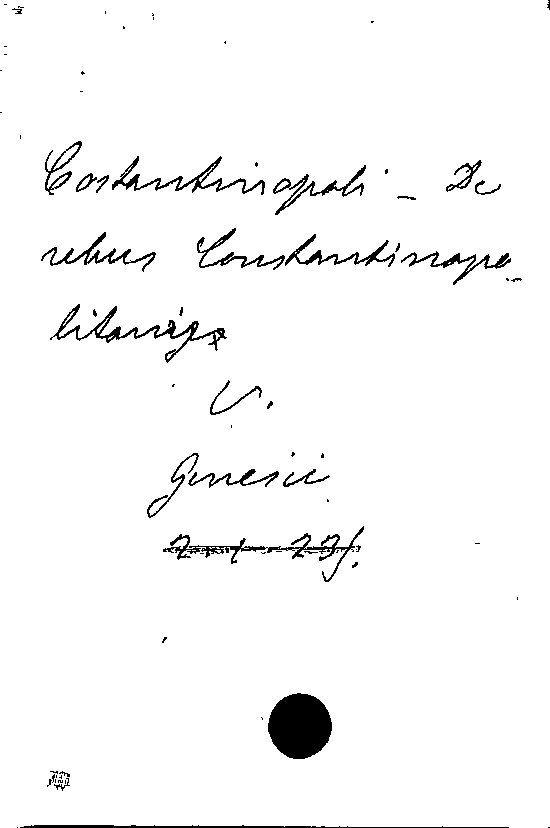 Costantinopoli - De
rebus Constantinopo-
litanis
V.
Genesii